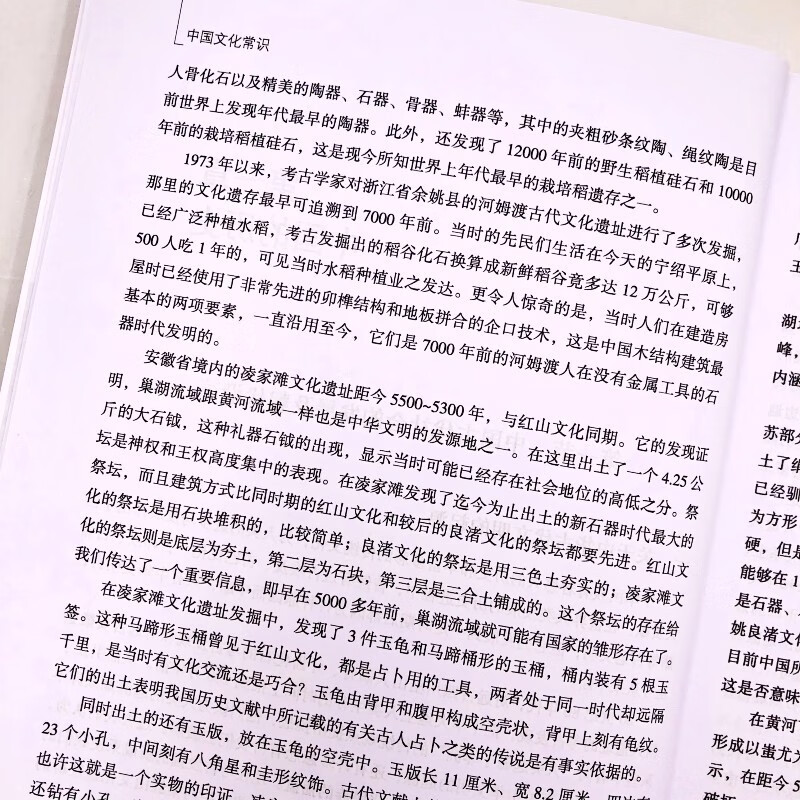 中国文化常识
人骨化石以及精美的陶器、石器、骨器、蚌器等，其中的夹粗砂条纹陶、绳纹陶是目
前世界上发现年代最早的陶器。此外，还发现了 12000 年前的野生稻植硅石和 10000
年前的栽培稻植硅石，这是现今所知世界上年代最早的栽培稻遗存之一。
1973 年以来，考古学家对浙江省余姚县的河姆渡古代文化遗址进行了多次发掘，
那里的文化遗存最早可追溯到 7000 年前。当时的先民们生活在今天的宁绍平原上，
已经广泛种植水稻，考古发掘出的稻谷化石换算成新鲜稻谷竟多达 12 万公斤，可够
500 人吃 1 年的，可见当时水稻种植业之发达。更令人惊奇的是，当时人们在建造房
屋时已经使用了非常先进的卯榫结构和地板拼合的企口技术，这是中国木结构建筑最
基本的两项要素，一直沿用至今，它们是 7000 年前的河姆渡人在没有金属工具的石
器时代发明的。
安徽省境内的凌家滩文化遗址距今 5500~5300 年，与红山文化同期。它的发现证
明，巢湖流域跟黄河流域一样也是中华文明的发源地之一。在这里出土了一个 4.25 公
斤的大石钺，这种礼器石钺的出现，显示当时可能已经存在社会地位的高低之分。祭
坛是神权和王权高度集中的表现。在凌家滩发现了迄今为止出土的新石器时代最大的
祭坛，而且建筑方式比同时期的红山文化和较后的良渚文化的祭坛都要先进。红山文
化的祭坛是用石块堆积的，比较简单；良渚文化的祭坛是用三色土夯实的；凌家滩文
化的祭坛则是底层为夯土，第二层为石块，第三层是三合土铺成的。这个祭坛的存在给
我们传达了一个重要信息，即早在 5000 多年前，巢湖流域就可能有国家的雏形存在了。
在凌家滩文化遗址发掘中，发现了 3 件玉龟和马蹄桶形的玉桶，桶内装有 5 根玉
签。这种马蹄形玉桶曾见于红山文化，都是占卜用的工具，两者处于同一时代却远隔
千里，是当时有文化交流还是巧合？玉龟由背甲和腹甲构成空壳状，背甲上刻有龟纹。
它们的出土表明我国历史文献中所记载的有关古人占卜之类的传说是有事实依据的。
同时出土的还有玉版，放在玉龟的空壳中。玉版长 11 厘米、宽 8.2 厘米，四边有
23 个小孔，中间刻有八角星和圭形纹饰。古代文献
也许这就是一个实物的印证。
还钻有小孔
王
湖北
峰，
内涵
苏部分
土了
已经驯
为方形
硬，但是
能够在 1
是石器、
姚良渚文化
目前中国所
这是否意味
在黄河
形成以蚩尤
示，在距今 5